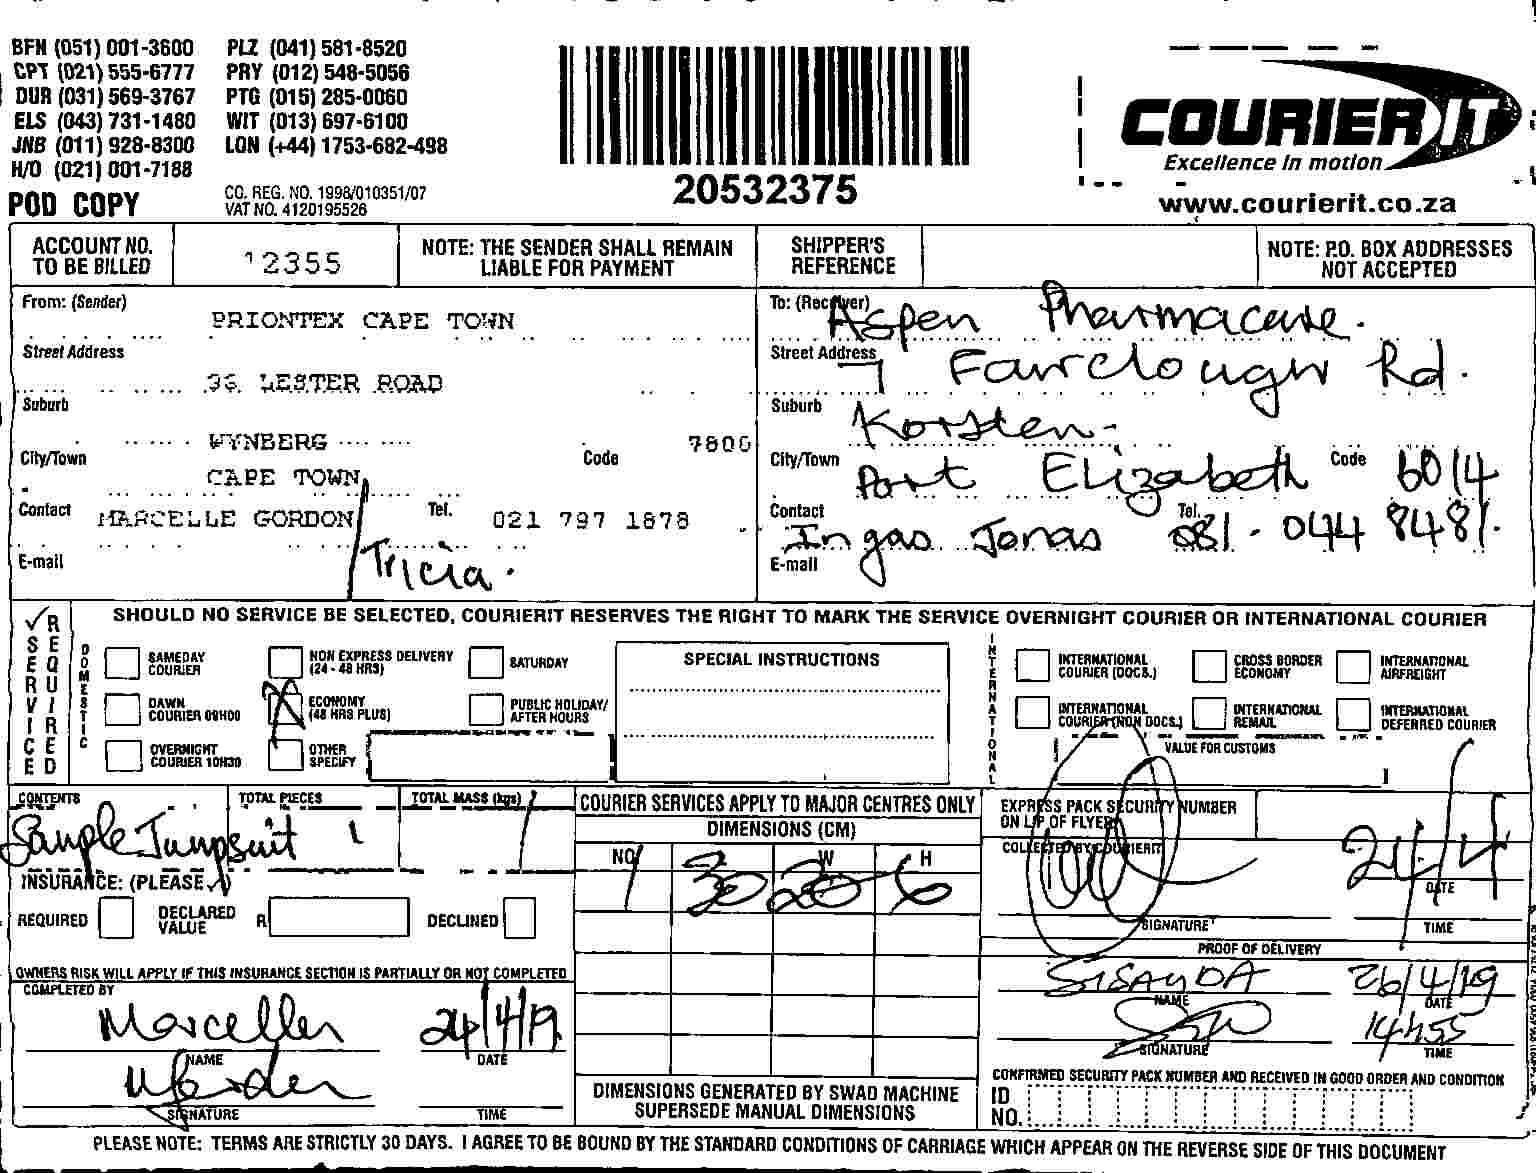 BFN (051) 001-3600 PLZ (041) 581-8520
CPT (021) 555-6777 PRY (012) 548-5056
DUR (031) 569-3767 PTG (015) 285-0060
ELS (043) 731-1480 WIT (013) 697-6100
JNB (011) 928-8300 LON (+44) 1753-682-498
H/O (021) 001-7188
POD COPY
CO. REG. NO. 1998/010351/07
VAT NO. 4120195526
20532375
COURIER IT
Excellence in motion
www.courierit.co.za
ACCOUNT NO. TO BE BILLED
12355
NOTE: THE SENDER SHALL REMAIN LIABLE FOR PAYMENT
SHIPPER'S REFERENCE
NOTE: P.O. BOX ADDRESSES NOT ACCEPTED
From: (Sender)
PRIONTEX CAPE TOWN
Street Address
36 LESTER ROAD
Suburb
WYNBERG
City/Town
CAPE TOWN
Code 7800
Contact MARCELLE GORDON / Tricia.
Tel. 021 797 1878
E-mail
To: (Receiver) Aspen Pharmacare.
Street Address 7 Fairclough Rd.
Suburb Korsten-
City/Town Port Elizabeth Code 6014
Contact Ingas Jonas Tel. 081-044 8481.
E-mail
SERVICE REQUIRED
SHOULD NO SERVICE BE SELECTED, COURIERIT RESERVES THE RIGHT TO MARK THE SERVICE OVERNIGHT COURIER OR INTERNATIONAL COURIER
DOMESTIC
SAMEDAY COURIER
NON EXPRESS DELIVERY (24 - 48 HRS)
SATURDAY
DAWN COURIER 09H00
ECONOMY (48 HRS PLUS)
PUBLIC HOLIDAY/ AFTER HOURS
OVERNIGHT COURIER 10H30
OTHER SPECIFY
SPECIAL INSTRUCTIONS
INTERNATIONAL
INTERNATIONAL COURIER (DOCS.)
CROSS BORDER ECONOMY
INTERNATIONAL AIRFREIGHT
INTERNATIONAL COURIER (NON DOCS.)
INTERNATIONAL REMAIL
INTERNATIONAL DEFERRED COURIER
VALUE FOR CUSTOMS
CONTENTS
Sample Jumpsuit
TOTAL PIECES
1
TOTAL MASS (kgs)
1
INSURANCE: (PLEASE √)
REQUIRED
DECLARED VALUE R
DECLINED
OWNERS RISK WILL APPLY IF THIS INSURANCE SECTION IS PARTIALLY OR NOT COMPLETED
COMPLETED BY
24/4/19
NAME
DATE
SIGNATURE
TIME
COURIER SERVICES APPLY TO MAJOR CENTRES ONLY
DIMENSIONS (CM)
NO W H
1 30 20 6
DIMENSIONS GENERATED BY SWAD MACHINE
SUPERSEDE MANUAL DIMENSIONS
EXPRESS PACK SECURITY NUMBER
ON LIP OF FLYER
COLLECTED BY COURIERIT
24/4
DATE
SIGNATURE
TIME
PROOF OF DELIVERY
SISANDA 26/4/19
NAME
DATE
14h55
SIGNATURE
TIME
CONFIRMED SECURITY PACK NUMBER AND RECEIVED IN GOOD ORDER AND CONDITION
ID NO.
PLEASE NOTE: TERMS ARE STRICTLY 30 DAYS. I AGREE TO BE BOUND BY THE STANDARD CONDITIONS OF CARRIAGE WHICH APPEAR ON THE REVERSE SIDE OF THIS DOCUMENT